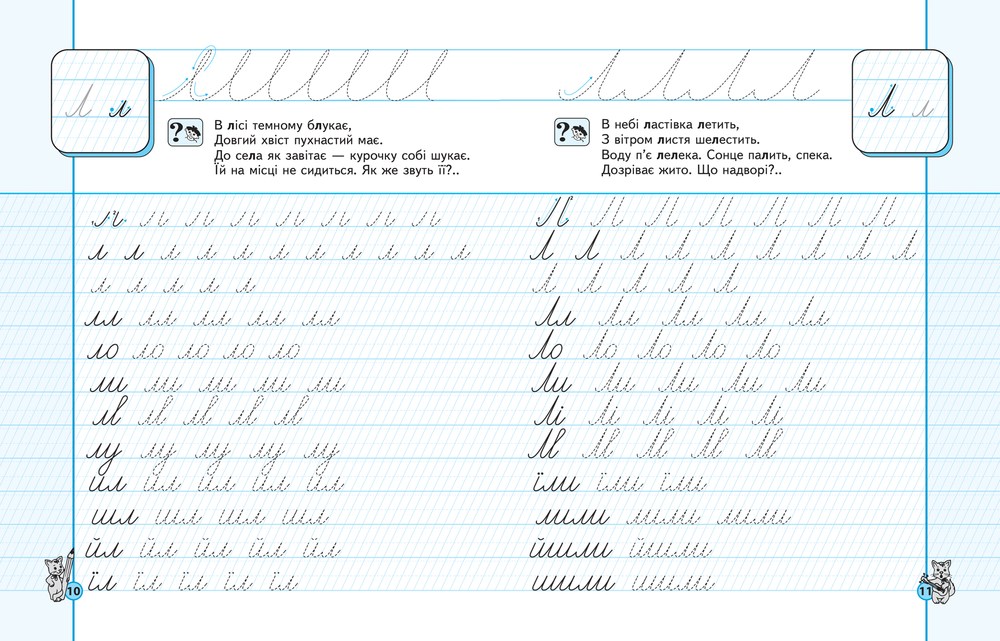 Л л
В лісі темному блукає,
Довгий хвіст пухнастий має.
До села як завітає — курочку собі шукає.
Їй на місці не сидиться. Як же звуть її?..
л л л л л л л л
л л л л л л л л л л л
л л л л л
лл лл лл лл лл
ло ло ло ло ло
ли ли ли ли ли
лв лв лв лв лв
лу лу лу лу лу
ил ил ил ил ил
шл шл шл шл
йл йл йл йл йл
їл їл їл їл їл
10
Л л
В небі ластівка летить,
З вітром листя шелестить.
Воду п’є лелека. Сонце палить, спека.
Дозріває жито. Що надворі?..
Л Л Л Л Л Л Л
Л Л Л Л Л Л Л Л Л
Л Л Л Л Л
Лл Лл Лл Лл Лл
Ло Ло Ло Ло Ло
Ли Ли Ли Ли Ли
Лі Лі Лі Лі Лі
Лв Лв Лв Лв Лв
їли їли їли
лили лили лили
йшли йшли
шили шили
11